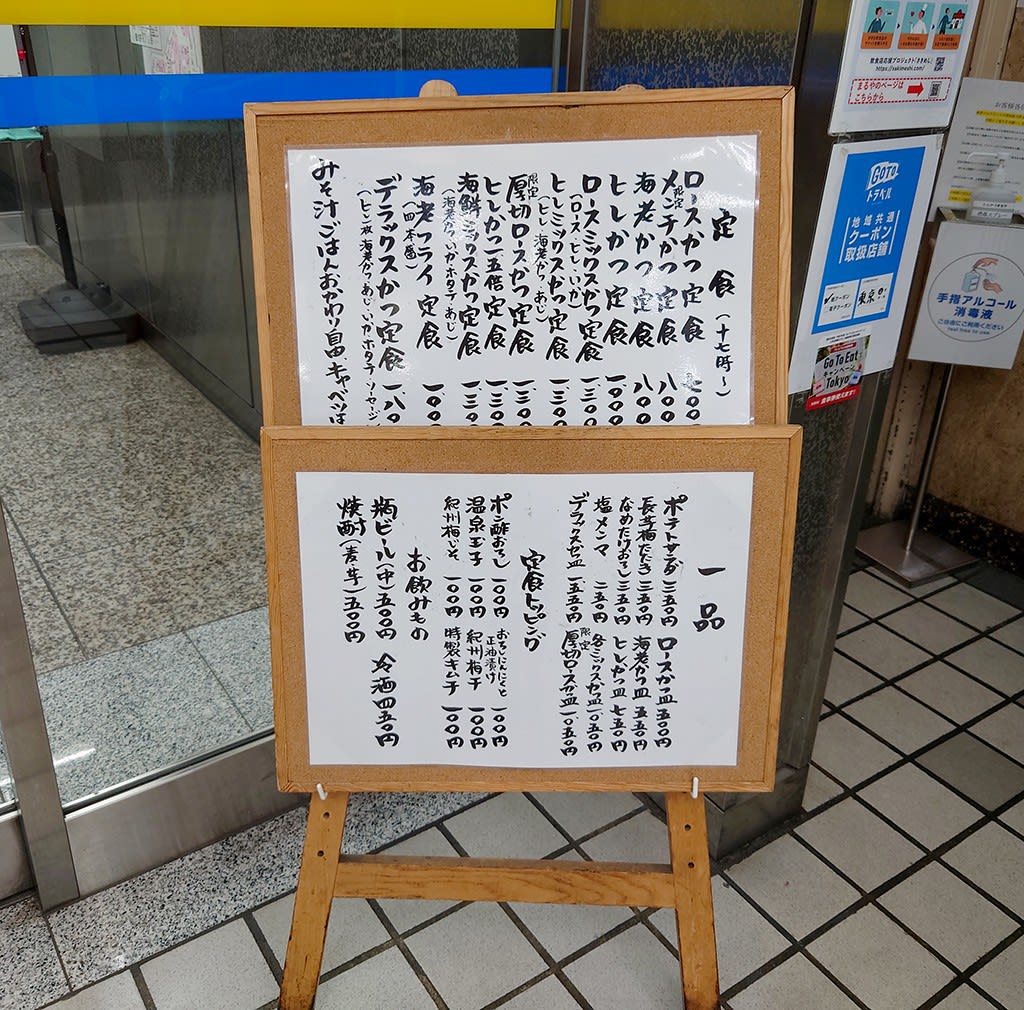 定食(十七時〜)
ロースかつ定食 七〇〇
限定
メンチかつ定食 八〇〇
海老かつ定食 八〇〇
ヒレかつ定食 一、〇〇〇
ロースミックスかつ定食 一、三〇〇
(ロース・ヒレ・いか)
ヒレミックスかつ定食 一、三〇〇
(ヒレ・海老かつ・あじ)
限定
厚切ロースかつ定食 一、三〇〇
ヒレかつ一.五倍定食 一、三〇〇
海鮮ミックスかつ定食 一、三〇〇
(海老かつ・いか・ホタテ・あじ)
海老フライ定食
(四本盛)
デラックスかつ定食 一、八〇
(ヒレ二枚 海老かつ・あじ・いか・ホタテ・ソーセージ)
みそ汁、ごはんおかわり自由、キャベツは
一品
ポテトサラダ 三五〇円
長芋梅たたき 三五〇円
なめたけおろし 二五〇円
塩メンマ 二五〇円
デラックスかつ皿 一、五五〇円
ロースかつ皿 五五〇円
海老かつ皿 五五〇円
ヒレかつ皿 七五〇円
各ミックスかつ皿 一、〇五〇円
限定
厚切ロースかつ皿 一、〇五〇円
定食トッピング
ポン酢おろし 一〇〇円
温泉玉子 一〇〇円
紀州梅しそ 一〇〇円
おろしにんにくと
正油漬け 一〇〇円
紀州梅干 一〇〇円
特製キムチ 一〇〇円
お飲みもの
瓶ビール(中)五〇〇円
焼酎(麦・芋)五〇〇円
冷酒 四五〇円
飲食店応援プロジェクト「さきめし」
https://sakimeshi.com/
まるやのページは
こちらから
GOTO
トラベル
地域共通
クーポン
取扱店舗
電子クーポン
東京
Go To Eat
キャンペーン
Tokyo
お客様各位
手指アルコール
消毒液
ご自由にご利用ください
feel free to use